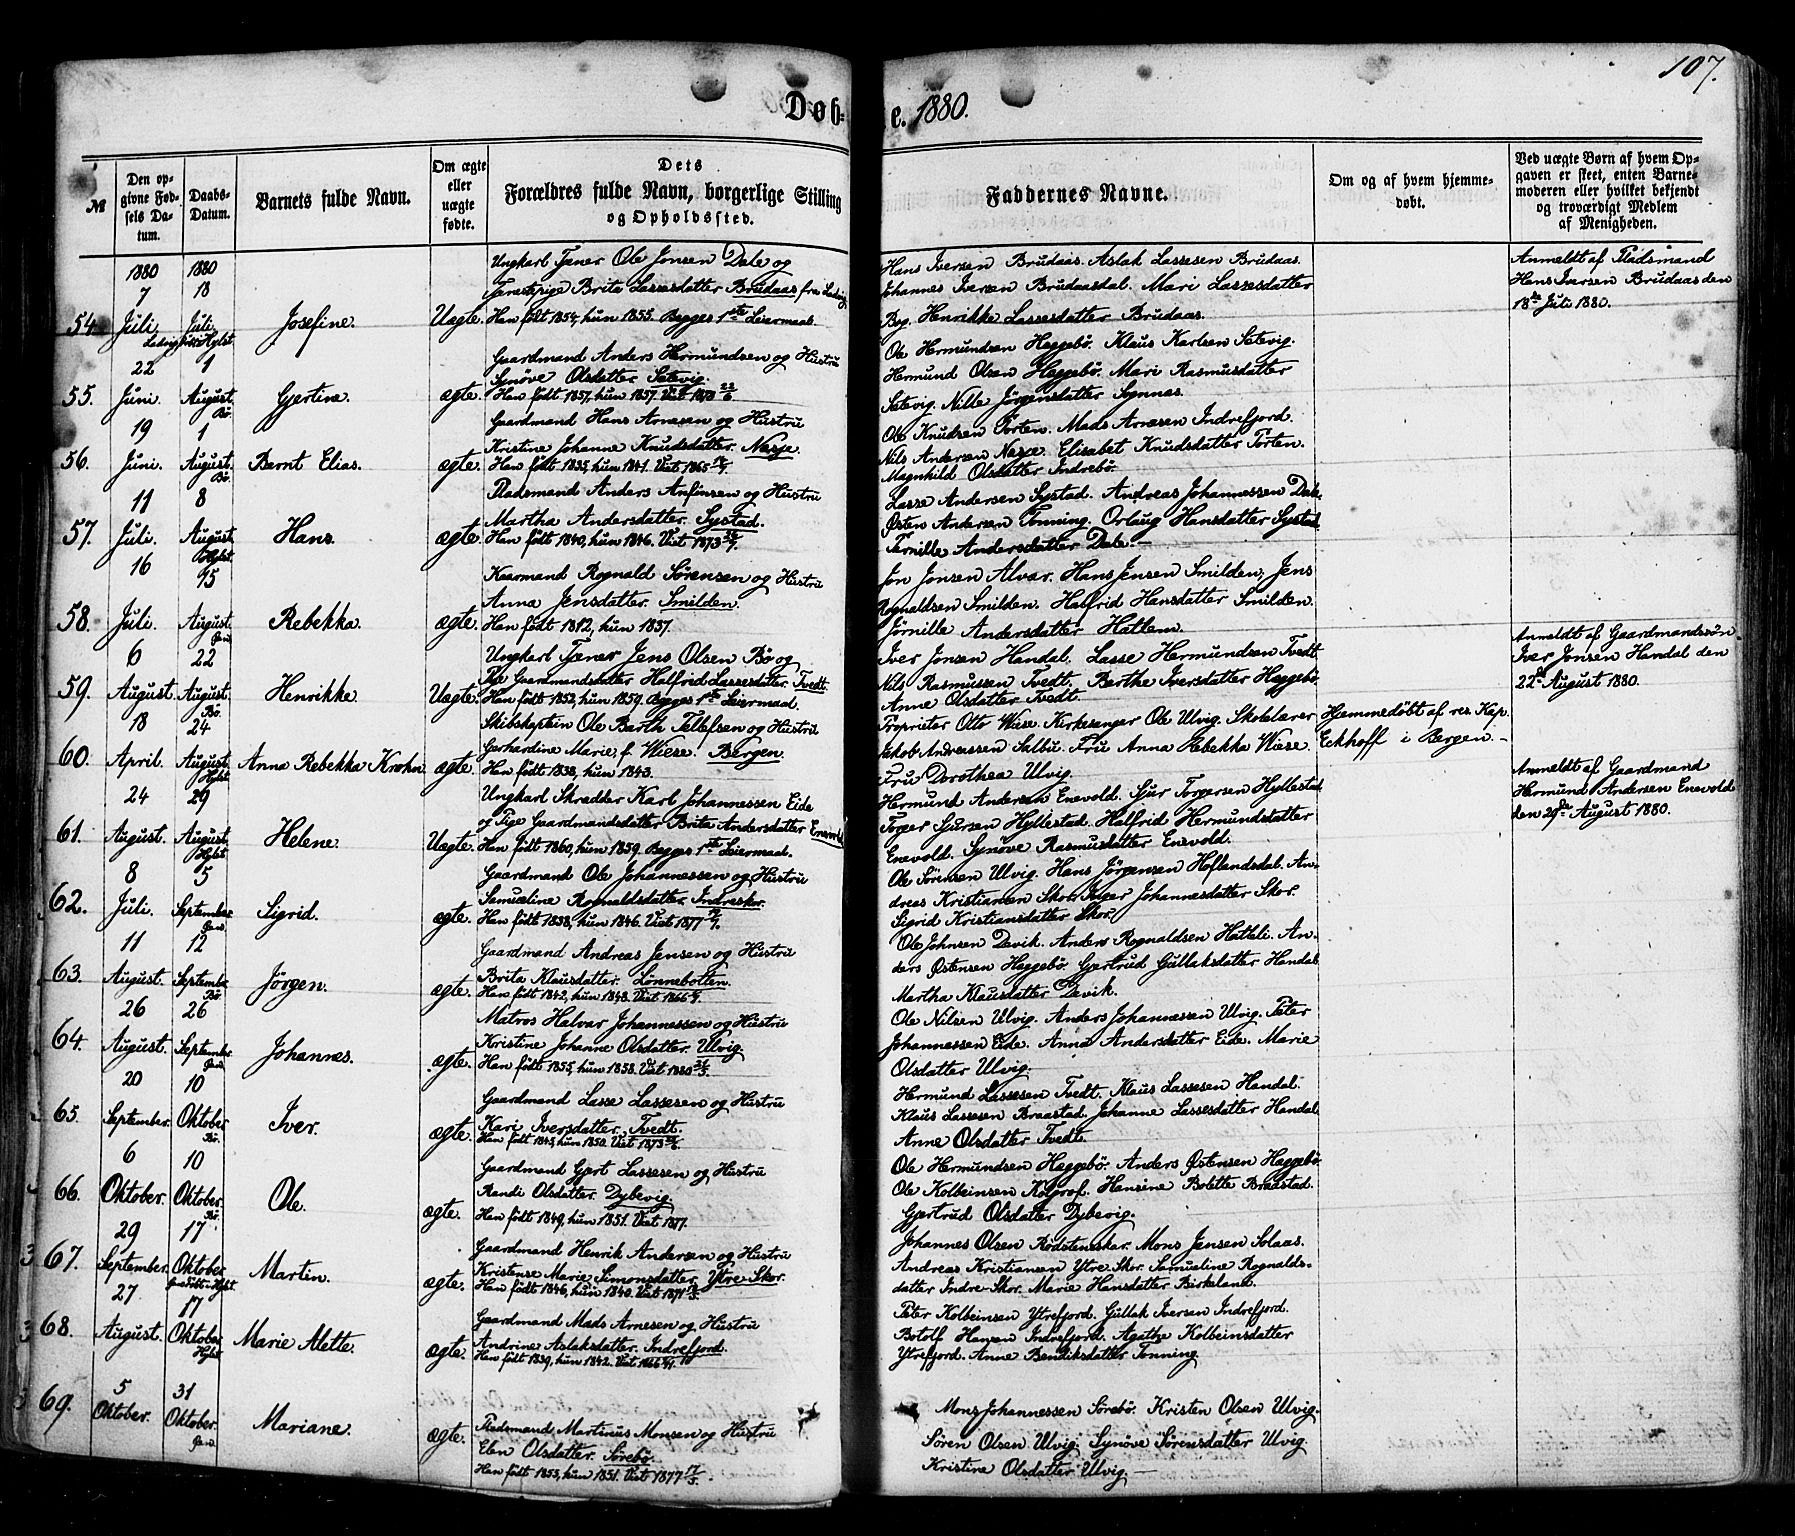 107.
Døb= e. 1880.
№
Den op-
givne Fød-
sels Da-
tum.
Daabs-
Datum.
Barnets fulde Navn.
Om ægte
eller
uægte
fødte.
Dets
Forældres fulde Navn, borgerlige Stilling
og Opholdssted.
Faddernes Navne.
Om og af hvem hjemme-
døbt.
Ved uægte Børn af hvem Op-
gaven er skeet, enten Barne-
moderen eller hvilket bekjendt
og troværdigt Medlem
af Menigheden.
54.
1880
7
Juli.
1880
18
Juli.
Hylst.
Josefine.
Uægte.
Ungkarl Tjener Ole Jonsen Dale og
Tjenestepige Brita Lassesdatter Brudaas fra Ladvig
Han født 1854, hun 1855. Begges 1ste Leiermaal.
Hans Iversen Brudaas. Aslak Lassesen Brudaas.
Johannes Iversen Brudaasdal. Mari Lassesdatter
Bø. Henrikke Lassesdatter Brudaas.
Anmeldt af Pladsmand
Hans Iversen Brudaas den
18de Juli 1880.
55.
22
Juni.
1
August.
Bø.
Gjertine.
ægte.
Gaardmand Anders Hermundsen og Hustru
Synøve Olsdatter Satevig.
Han født 1857, hun 1857. Viet 1878 22/6.
Ole Hermundsen Haggebö. Klaus Karlsen Satevig.
Hermund Olsen Haggebö. Mari Rasmusdatter
Satevig. Nille Jörgensdatter Sygnæs.
56.
19
Juni.
1
August.
Bø.
Bernt Elias.
ægte.
Gaardmand Hans Arnesen og Hustru
Kristine Johanne Knudsdatter. Nesje
Han født 1835, hun 1841. Viet 1865
Ole Knudsen Torten. Mads Arnesen Indrefjord.
Nils Andersen Nesje. Elisabet Knudsdatter Torten.
Magnhild Olsdatter Indrebö.
57.
11
Juli.
8
August.
Hylst.
Hans.
ægte.
Pladsmand Anders Anfinsen og Hustru
Martha Andersdatter. Systad.
Han født 1840, hun 1846. Viet 1873
Lasse Andersen Systad. Andreas Johannessen Dale.
Østen Andersen Tonning. Orlaug Hansdatter Systad.
Pernille Andersdatter Dale.—
58.
16
Juli.
15
August.
Rebekka.
ægte.
Kaarmand Rognald Sørensen og Hustru
Anna Jensdatter. Smilden.
Han født 1812, hun 1837.
Jon Jonsen Alvær. Hans Jensen Smilden, Jens
Rognaldsen Smilden. Halfrid Hansdatter Smilden.
Jörnille Andersdatter Hatlem.
59.
6
August.
22
August.
Bø.
Henrikke.
Uægte.
Ungkarl Tjener Jens Olsen Bø og
Pige Gaardmandsdatter Halfrid Lassesdatter. Tvedt.
Han født 1852, hun 1859. Begges 1ste Leiermaal.
Iver Jonsen Handal. Lasse Hermundsen Tvedt
Nils Rasmussen Tvedt. Berthe Iversdatter Haggebø.
Anne Olsdatter Tvedt.
Anmeldt af Gaardmandssøn
Iver Jonsen Handal den
22de August 1880.
60.
18
April.
24
August.
Hylst.
Anna Rebekka Krohn.
ægte.
Skibskaptein Ole Barth Tellefsen og Hustru
Gerhardine Marie, f. Wiese. Bergen.
Han født 1838, hun 1843.
Proprietær Otto Wiese. Kirkesanger Ole Ulvig. Skolelærer
Jakob Andreassen Salbu. Fru Anna Rebekka Wiese.
Fru Dorothea Ulvig.
Hjemmedøbt af res. Kap.
Eckhoff i Bergen.—
61.
24
August.
29
August.
Hylst.
Helene.
Uægte.
Ungkarl Skrædder Karl Johannessen Eide
og Pige Gaardmandsdatter Brita Andersdatter Enevold
Han født 1860, hun 1859. Begges 1ste Leiermaal.
Hermund Andersen Enevold. Sjur Torgersen Hyllestad
Torger Sjursen Hyllestad. Halfrid Hermundsdatter
Enevold. Synøve Rasmusdatter Enevold.
Anmeldt af Gaardmand
Hermund Andersen Enevold
den 29de August 1880.
62.
8
Juli.
5
September.
Sigrid.
ægte.
Gaardmand Ole Johannessen og Hustru
Samueline Rognaldsdatter. Indreskor.
Han født 1838, hun 1846. Viet 1877
Ole Sörensen Ulvig. Hans Jörgensen Hoflandsdal. An-
dreas Kristiansen Skor. Inger Johannesdatter Skor.
Sigrid Kristiansdatter Skor.
63.
11
August.
12
September.
Bø.
Jörgen.
ægte.
Gaardmand Andreas Jensen og Hustru
Brita Klausdatter. Lönnebotten.
Han født 1842, hun 1848. Viet 1866
Ole Johnsen Devik. Anders Rognaldsen Hatleli. An-
ders Østensen Haggebö. Gjertrud Gullaksdatter Handal.
Martha Klausdatter Devik.
64.
26
August.
26
September.
Johannes.
ægte.
Matros Halvar Johannessen og Hustru
Kristine Johanne Olsdatter. Ulvig.
Han født 1855, hun 1858. Viet 1880
Ole Nilsen Ulvig. Anders Johannessen Ulvig. Peter
Johannessen Eide. Anna Andersdatter Eide. Marie
Olsdatter Ulvig.
65.
20
September.
10
Oktober.
Bø.
Iver.
ægte.
Gaardmand Lasse Lassesen og Hustru
Kari Iversdatter. Tvedt.
Han født 1845, hun 1850. Viet 1873
Hermund Lassesen Tvedt. Klaus Lassesen Handal.
Klaus Lassesen Braastad. Johanne Lassesdatter Handal.
Anne Olsdatter Tvedt.
66.
6
Oktober.
10
Oktober.
Bø.
Ole.
ægte.
Gaardmand Gjert Lassesen og Hustru
Randi Olsdatter. Dybevig.
Han født 1849, hun 1851. Viet 1877.
Ole Hermundsen Haggebö. Anders Østensen Haggebö
Ole Kolbeinsen Kolgrof. Hansine Bolette Braastad.
Gjertrud Olsdatter Dybevig.
67.
29
September.
17
Oktober.
Martin.
ægte.
Gaardmand Henrik Andersen og Hustru
Kristense Marie Simonsdatter. Ytre Skor.
Han født 1846, hun 1840. Viet 1871
Johannes Olsen Rödstenskar. Mons Jensen Solaas.
Andreas Kristiansen Ytre Skor. Samueline Rognalds-
datter Indre Skor. Marie Hansdatter Birkeland.
68.
27
August.
17
Oktober.
Hylst.
Marie Alette.
ægte.
Gaardmand Mads Arnesen og Hustru
Andrine Aslaksdatter. Indrefjord.
Han født 1839, hun 1842. Viet 1866
Peter Kolbeinsen Ytrefjord. Gullak Iversen Indrefjord.
Botolf Hansen Indrefjord. Agathe Kolbeinsdatter
Ytrefjord. Anne Bendiksdatter Tonning.
69.
5
Oktober.
31
Oktober.
Mariane.
ægte.
Pladsmand Martinus Monsen og Hustru
Elen Olsdatter. Sörebö.
Han født 1853, hun 1851. Viet 1877 17/5.
Mons Johannessen Sörebö. Kristen Olsen Ulvig.
Sören Olsen Ulvig. Synöve Sörensdatter Ulvig
Kristine Olsdatter Ulvig.—